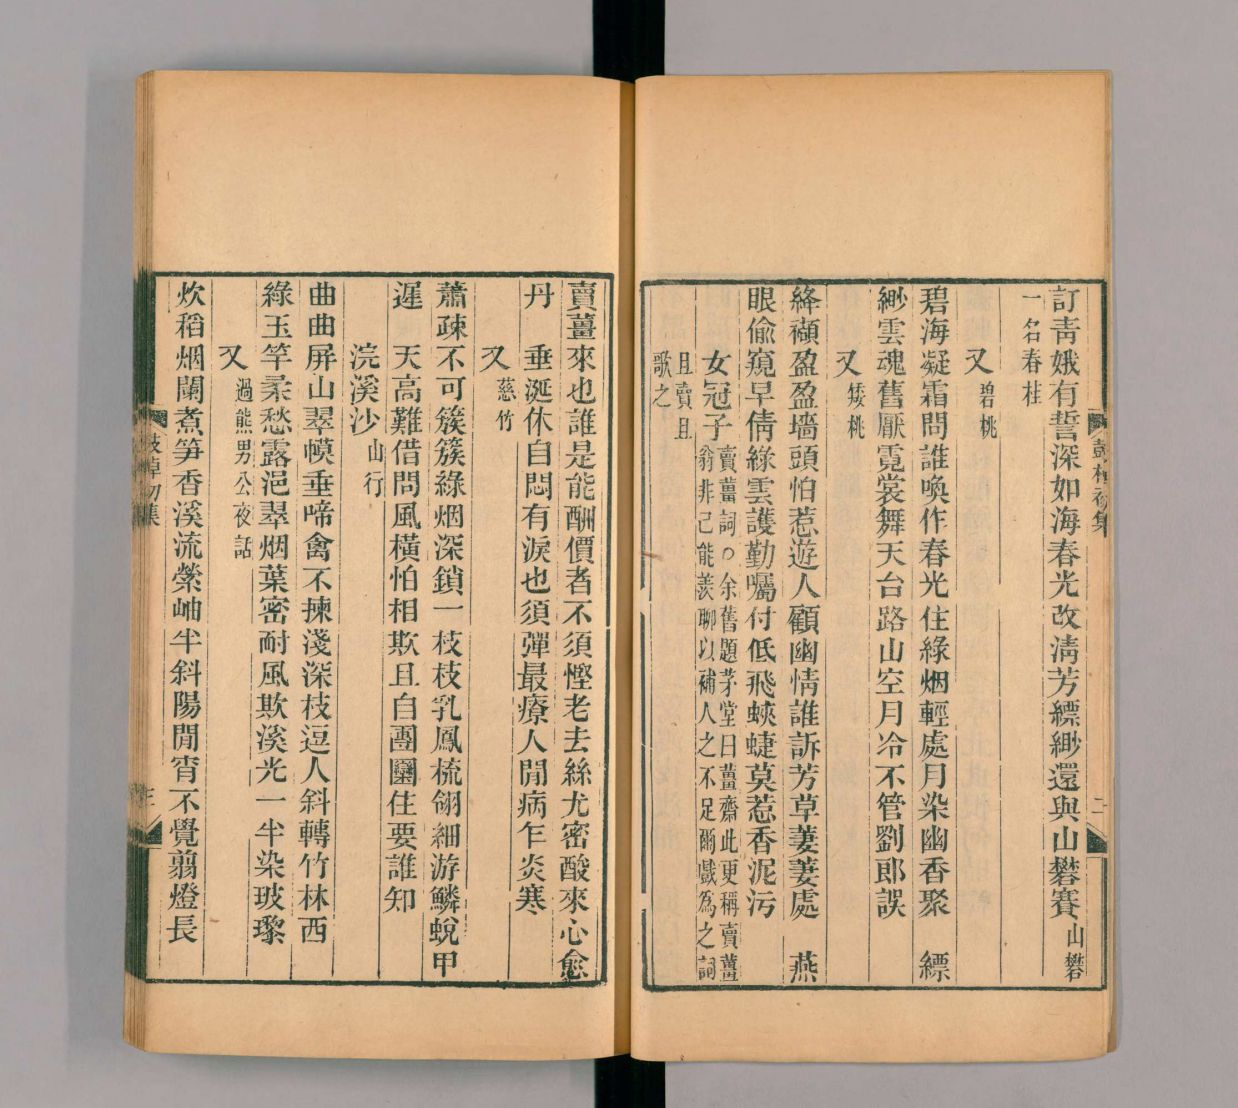 訂靑娥有誓深如海春光改淸芳縹緲還與山礬賽山礬
一名春桂
又碧桃
碧海凝霜問誰喚作春光住綠烟輕處月染幽香聚　縹
緲雲魂舊厭霓裳舞天台路山空月冷不管劉郎誤
又矮桃
絳襭盈盈墻頭怕惹遊人顧幽情誰訴芳草萋萋處　燕
眼偷窺早倩綠雲護勤囑付低飛蛺蜨莫惹香泥污
女冠子賣薑詞〇余舊題茅堂曰薑齋此更稱賣薑
翁非己能羨聊以補人之不足爾戲爲之詞
且賣且
歌之
鼓棹初集
二
賣薑來也誰是能酬價者不須慳老去絲尤密酸來心愈
丹　垂涎休自悶有淚也須彈最療人閒病乍炎寒
又慈竹
蕭疎不可簇簇綠烟深鎖一枝枝乳鳳梳翎細游鱗蛻甲
遲　天高難借問風橫怕相欺且自團圞住要誰知
浣溪沙山行
曲曲屏山翠幙垂啼禽不揀淺深枝逗人斜轉竹林西
綠玉竿柔愁露浥翠烟葉密耐風欺溪光一半染玻瓈
又過熊男公夜話
炊稻烟闌煮笋香溪流縈岫半斜陽閒宵不覺翦燈長
鼓棹初集
三